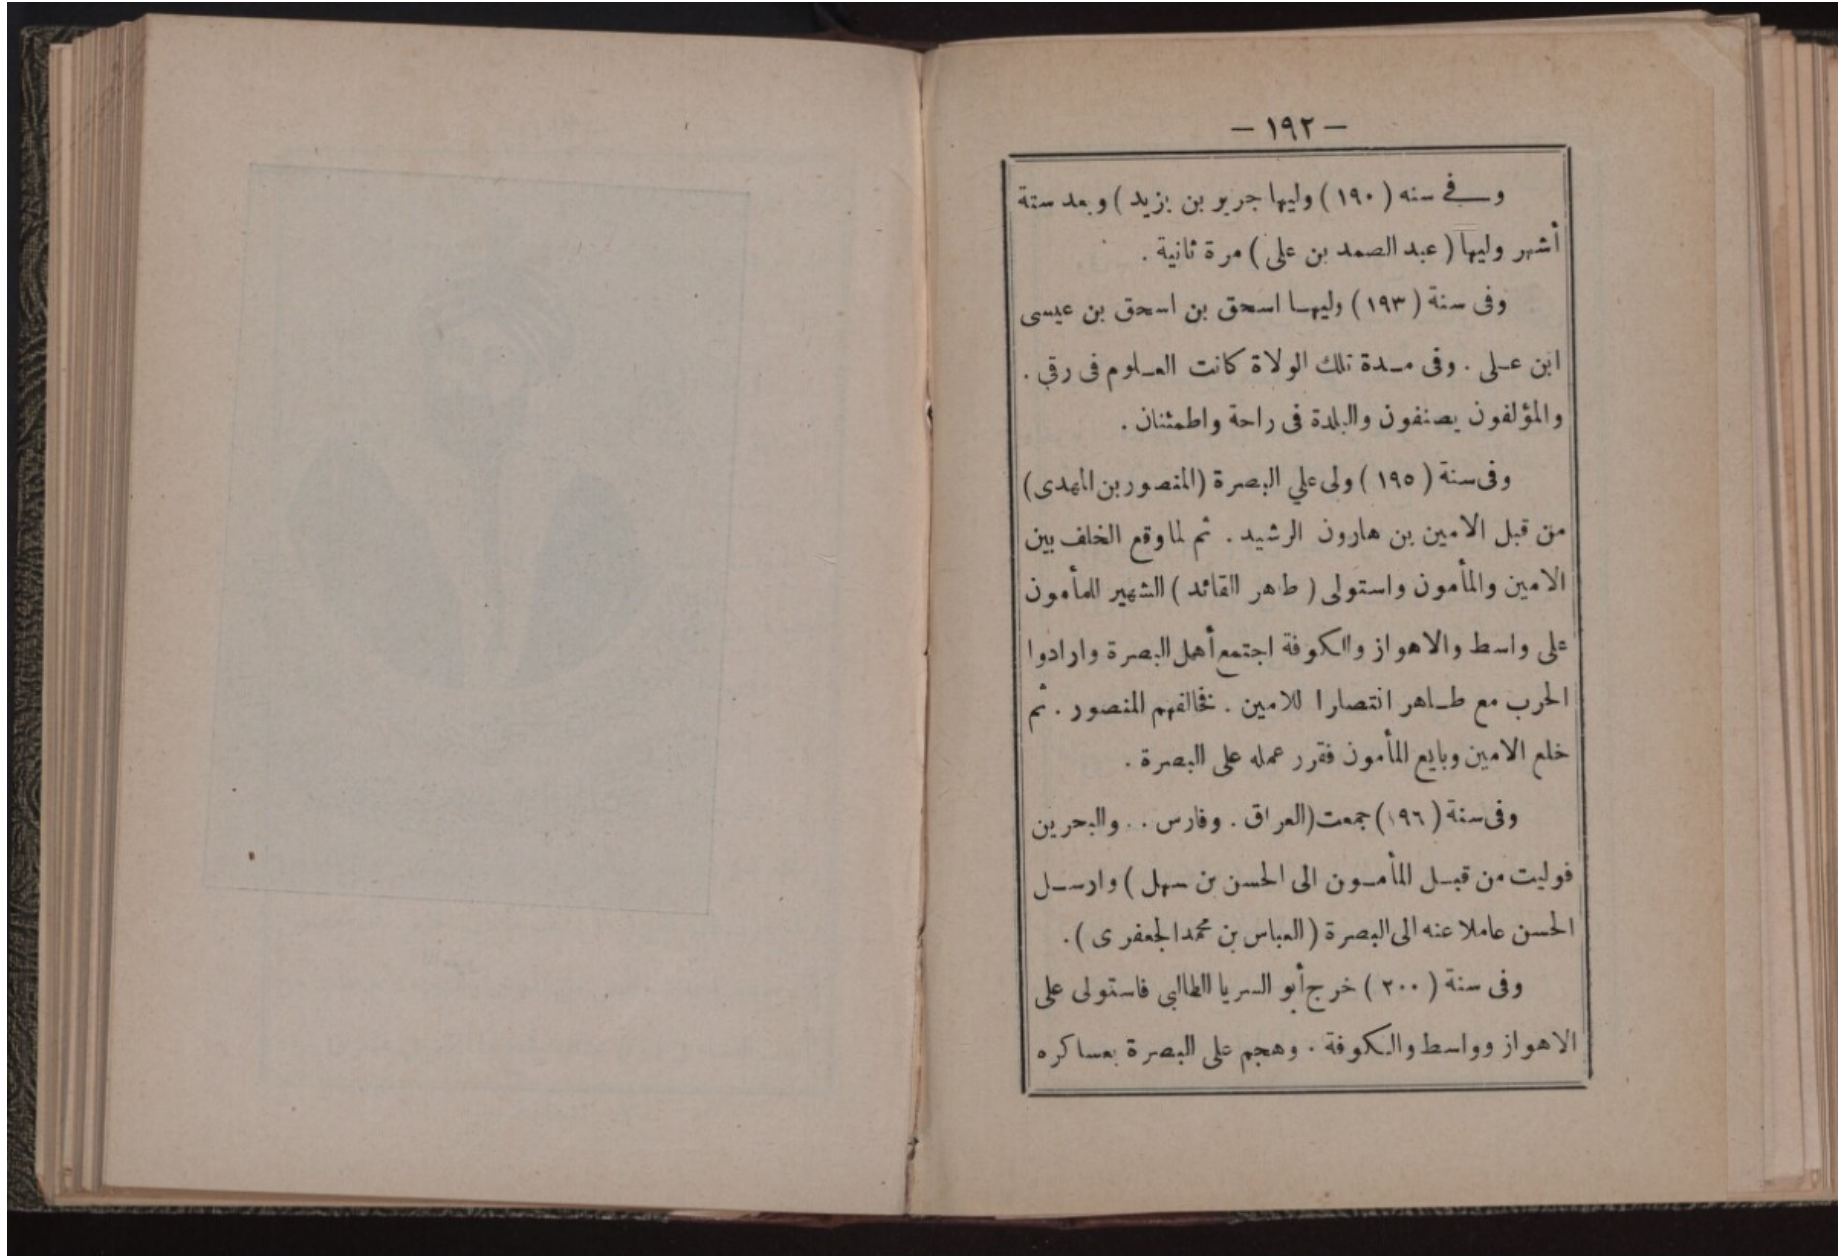 — ١٩٢ —
وفي سنه ( ١٩٠ ) وليها جرير بن يزيد ) وبعد ستة
أشهر وليها ( عبد الصمد بن على ) مرة ثانية .
وفى سنة ( ١٩٣ ) وليها اسحق بن اسحق بن عيسى
ابن على . وفى مدة تلك الولاة كانت العلوم فى رقي .
والمؤلفون يصنفون والبلدة فى راحة واطمئنان .
وفى سنة ( ١٩٥ ) ولى علي البصرة (المنصور بن المهدى)
من قبل الامين بن هارون الرشيد . ثم لما وقع الخلف بين
الامين والمأمون واستولى ( طاهر القائد ) الشهير للمأمون
على واسط والاهواز والكوفة اجتمع أهل البصرة وارادوا
الحرب مع طاهر انتصارا للامين . فخالفهم المنصور . ثم
خلع الامين وبايع المأمون فقرر عمله على البصرة .
وفى سنة ( ١٩٦ ) جمعت (العراق . وفارس . . والبحرين
فوليت من قبل المأمون الى الحسن بن سهل ) وارسل
الحسن عاملا عنه الى البصرة ( العباس بن محمد الجعفرى ) .
وفى سنة ( ٢٠٠ ) خرج أبو السريا الطالبى فاستولى على
الاهواز وواسط والكوفة . وهجم على البصرة بعساكره